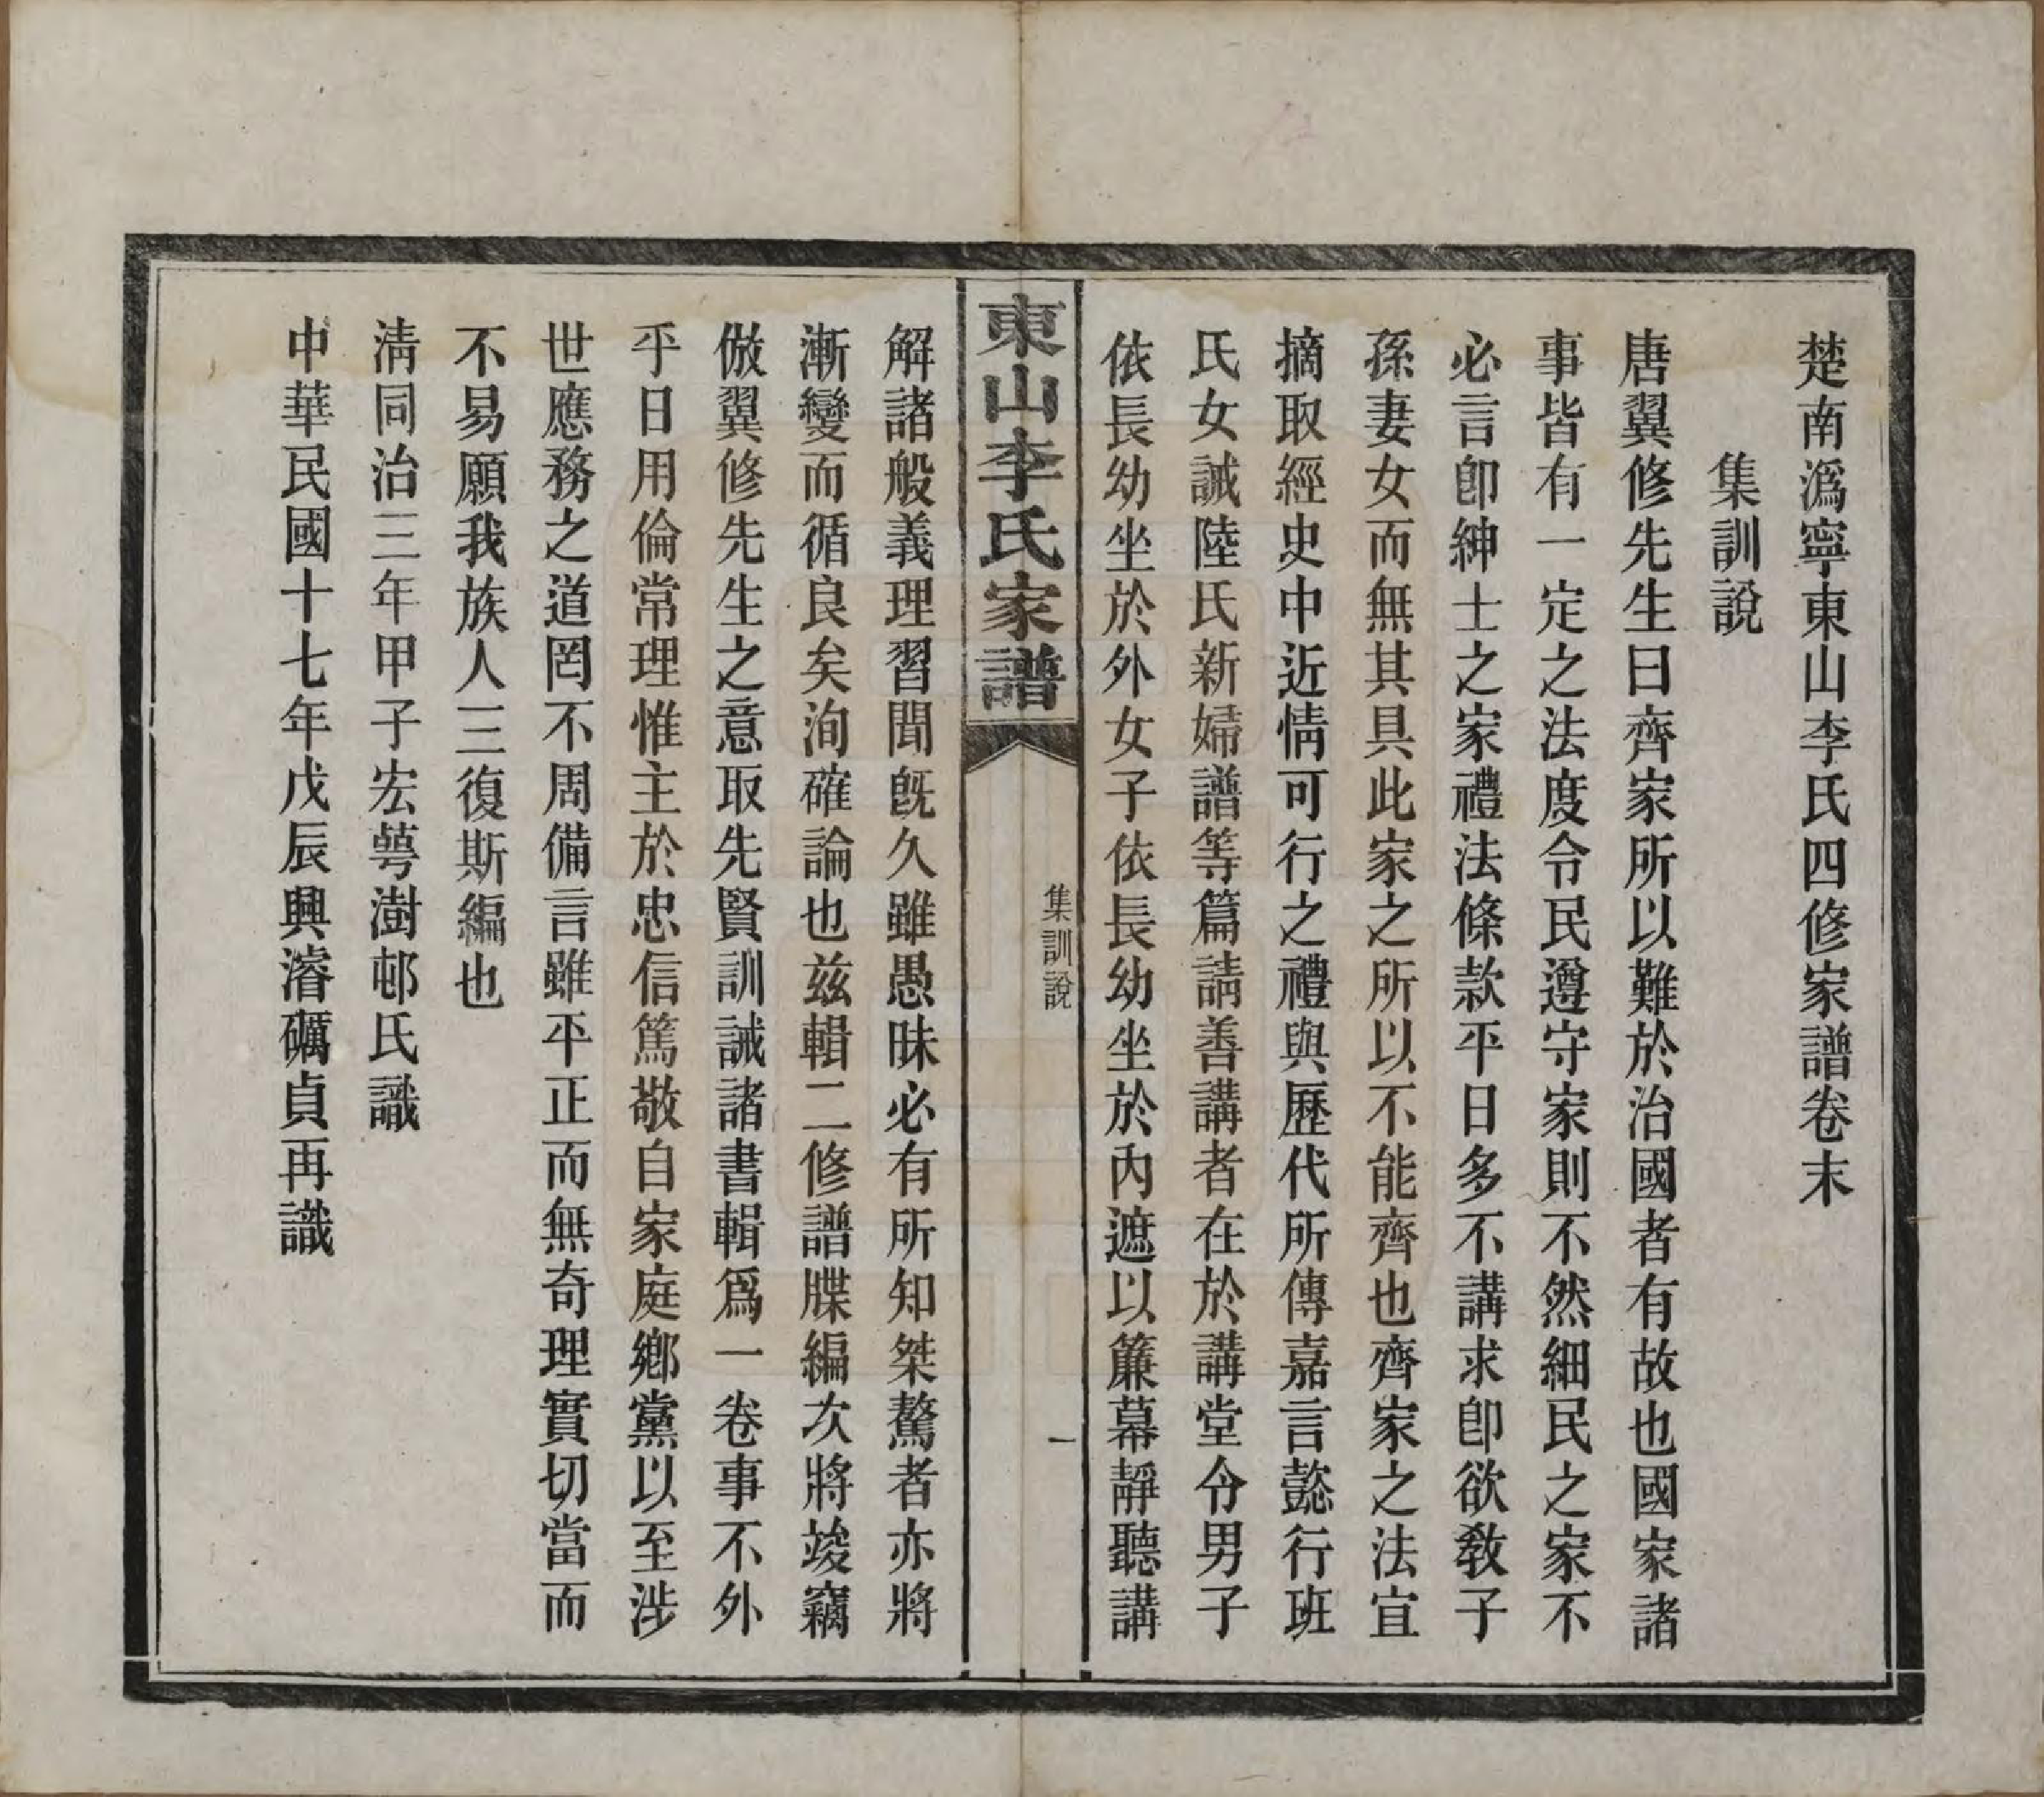 楚南潙寧東山李氏四修家譜卷末
集訓說
唐翼修先生曰齊家所以難於治國者有故也國家諸
事皆有一定之法度令民遵守家則不然細民之家不
必言卽紳士之家禮法條款平日多不講求卽欲教子
孫妻女而無其具此家之所以不能齊也齊家之法宜
摘取經史中近情可行之禮與歷代所傳嘉言懿行班
氏女誡陸氏新婦譜等篇請善講者在於講堂令男子
依長幼坐於外女子依長幼坐於內遮以簾幕靜聽講
東山李氏家譜
集訓說
一
解諸般義理習聞旣久雖愚昧必有所知桀驁者亦將
漸變而循良矣洵確論也兹輯二修譜牒編次將竣竊
倣翼修先生之意取先賢訓誡諸書輯爲一卷事不外
乎日用倫常理惟主於忠信篤敬自家庭鄉黨以至涉
世應務之道罔不周備言雖平正而無奇理實切當而
不易願我族人三復斯編也
淸同治三年甲子宏萼澍邨氏識
中華民國十七年戊辰興濬礪貞再識